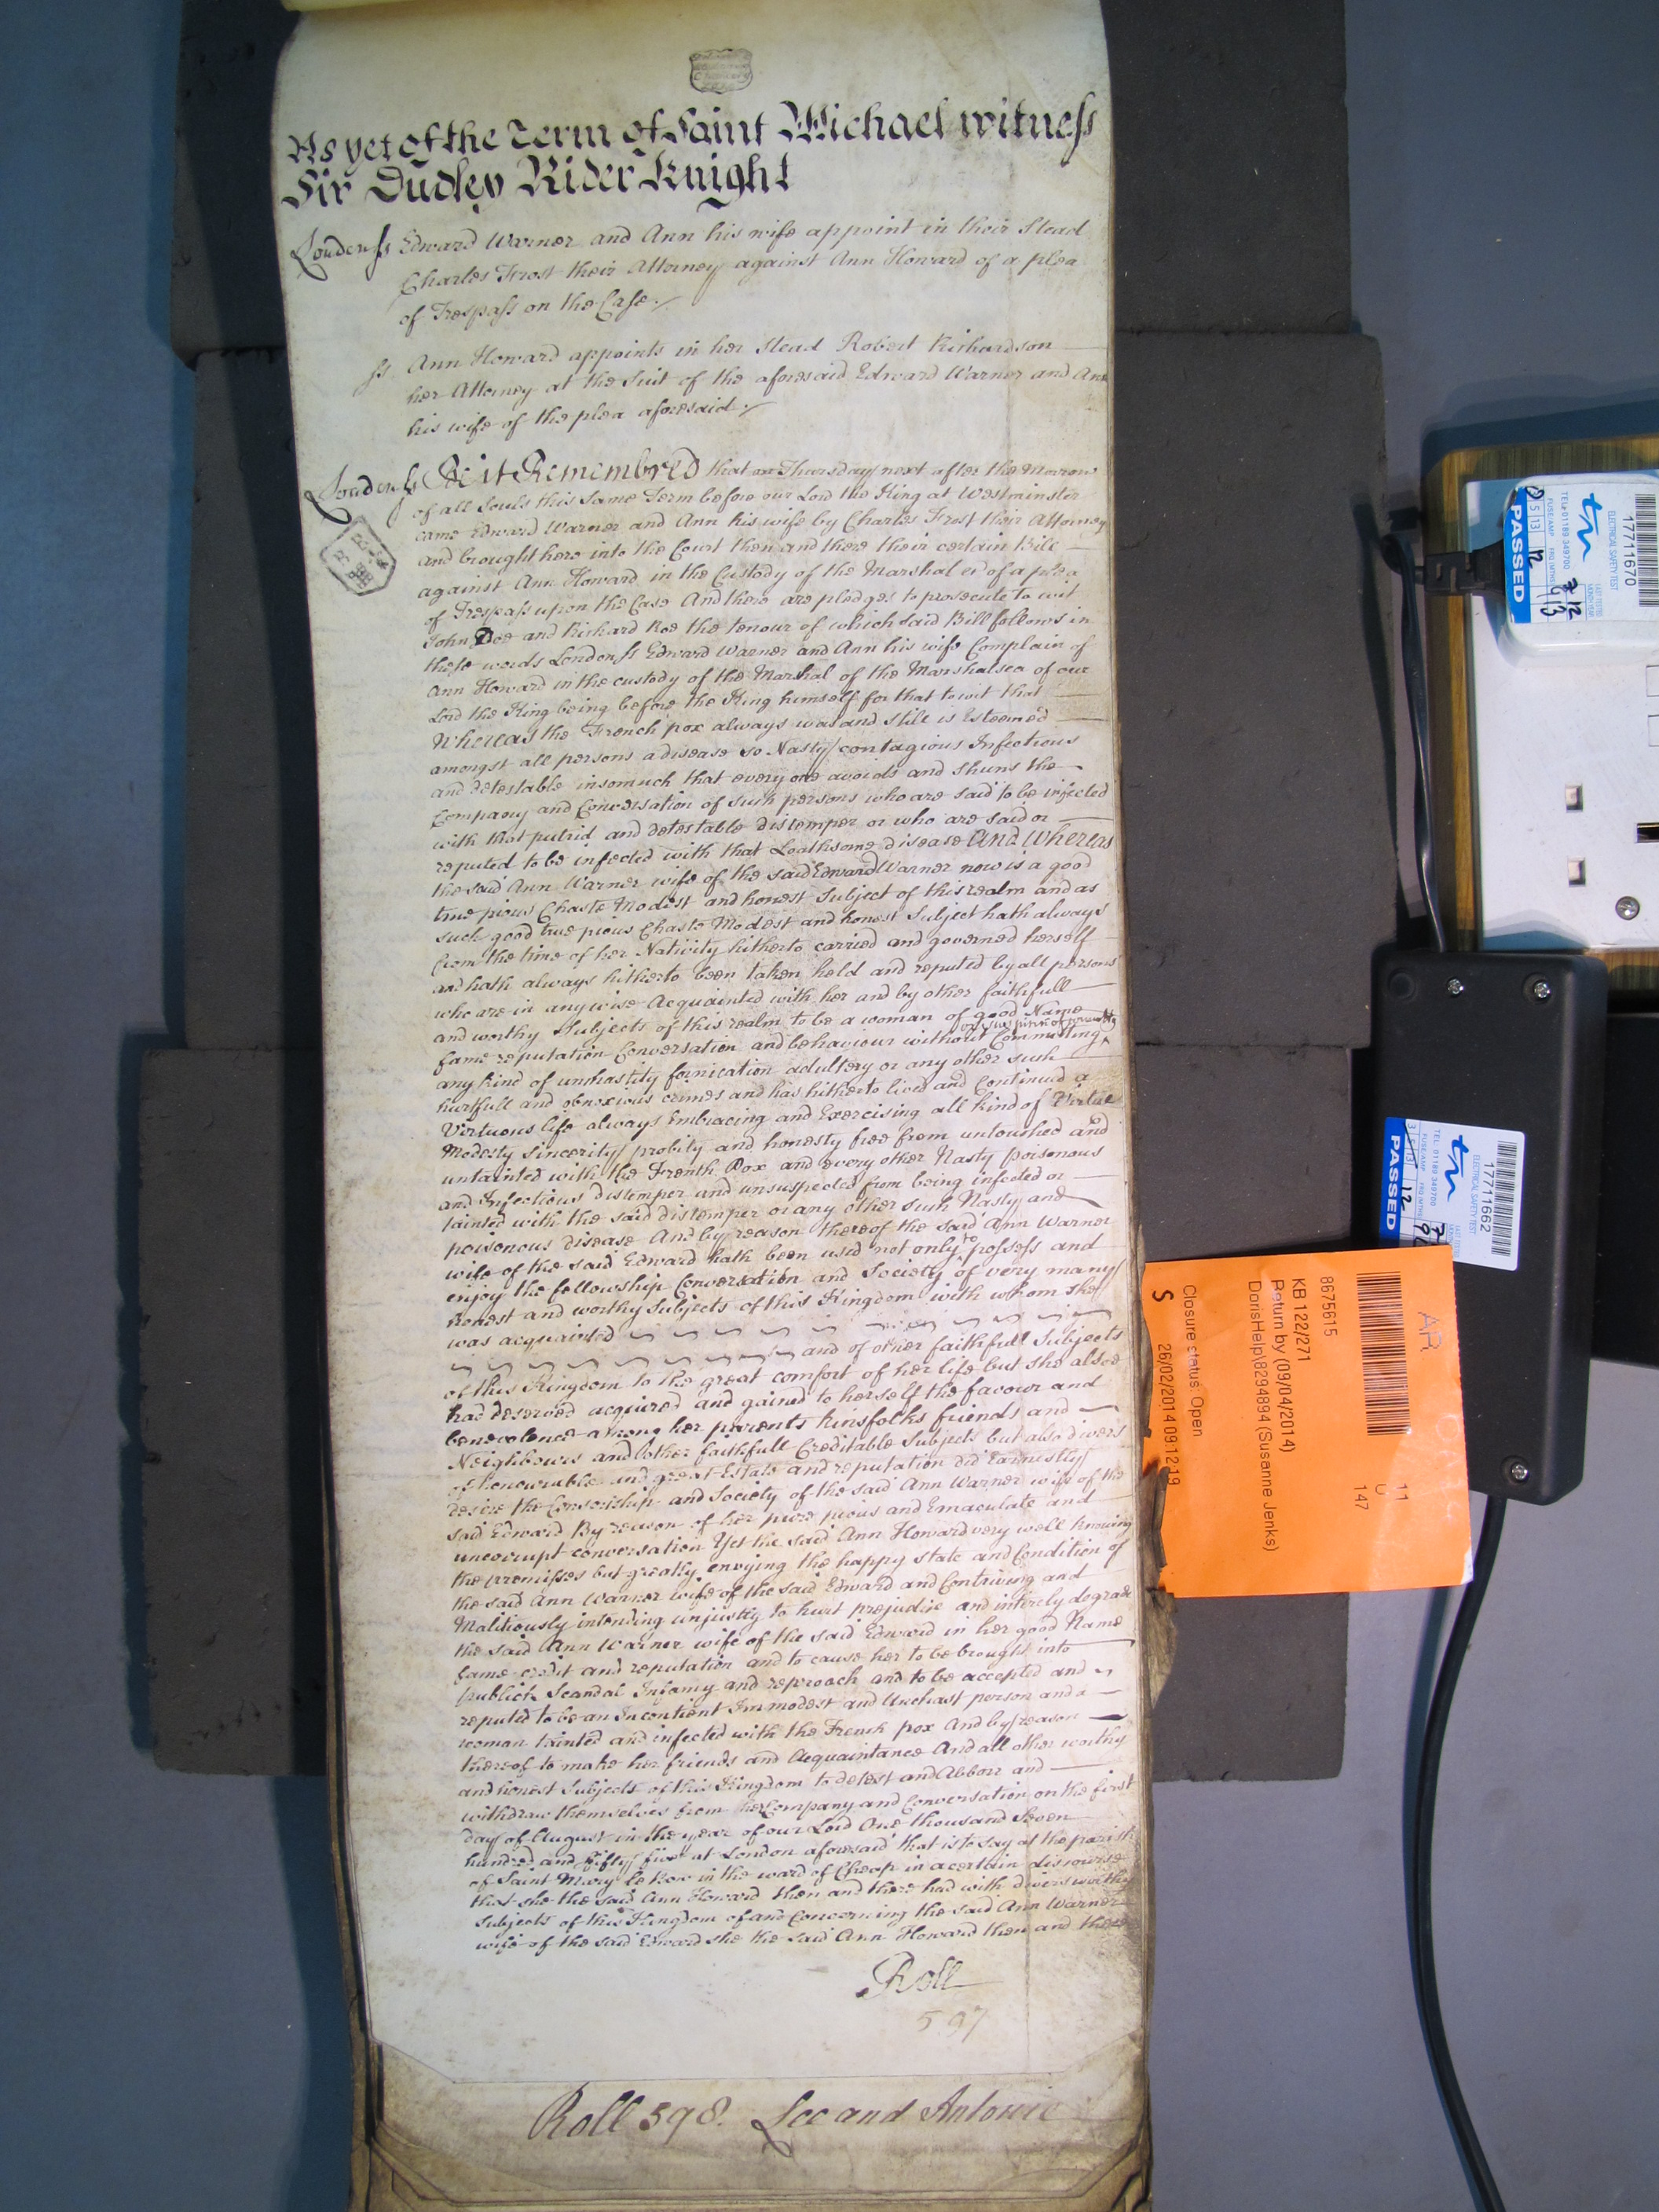 As yet of the Term of Saint Michael witness
Sir Dudley Rider Knight
London ss Edward Warner and Ann his wife appoint in their Stead
Charles Frost their Attorney against Ann Howard of a plea
of Trespass on the Case
ss Ann Howard appoints in her Stead Robert Richardson
her Attorney at the Suit of the aforesaid Edward Warner and Ann
his wife of the plea aforesaid
London ss Be it Remembred that on Thursday next after the Morrow
of all Souls this same Term before our Lord the King at Westminster
came Edward Warner and Ann his wife by Charles Frost their Attorney
and brought here into the Court then and there their certain Bill
against Ann Howard in the Custody of the Marshal &c of a plea
of Trespass upon the Case And there are pledges to prosecute to wit
John Doe and Richard Roe the tenour of which said Bill follows in
these words London ss Edward Warner and Ann his wife Complain of
Ann Howard in the custody of the Marshal of the Marshalsea of our
Lord the King being before the King himself for that to wit that
Whereas the French pox always was and still is Esteemed
amongst all persons a disease so Nasty contagious Infectious
and detestable insomuch that every one avoids and shuns the
Company and Conversation of such persons who are said to be infected
with that putrid and detestable distemper or who are said or
reputed to be infected with that Loathsome disease And Whereas
the said Ann Warner wife of the said Edward Warner now is a good
true pious Chaste Modest and honest Subject of this realm and as
such good true pious Chaste Modest and honest Subject hath always
from the time of her Nativity hitherto carried and governed herself
and hath always hitherto been taken held and reputed by all persons
who are in any wise Acquainted with her and by other faithfull
and worthy Subjects of this realm to be a woman of good Name
fame reputation Conversation and behaviour without Committing
any kind of unchastity fornication adultery or any other such
hurtfull and obnoxious crimes and has hitherto lived and Continued a
Virtuous life always Embracing and Exercising all kind of Virtue
Modesty sincerity probity and honesty free from untouched and
untainted with the French Pox and every other Nasty poisonous
and Infectious distemper and unsuspected from being infected or
tainted with the said distemper or any other such Nasty and
poisonous disease And by reason thereof the said Ann Warner
wife of the said Edward hath been used not only to possess and
enjoy the fellowship Conversation and Society of very many
honest and worthy Subjects of this Kingdom with whom she
was acquainted
and of other faithfull Subjects
of this Kingdom to the great comfort of her life but she alsoe
had deserved acquired and gained to herself the favour and
benevolence among her parents kinsfolks friends and
Neighbours and other faithfull Creditable Subjects but also divers
of honourable and great Estate and reputation did Earnestly
desire the Consortship and Society of the said Ann Warner wife of the
said Edward By reason of her pure pious and Emaculate and
uncorrupt conversation Yet the said Ann Howard very well knowing
the premisses but greatly envying the happy state and Condition of
the said Ann Warner wife of the said Edward and Contriving and
Malitiously intending unjustly to hurt prejudice and intirely degrade
the said Ann Warner wife of the said Edward in her good Name
fame credit and reputation and to cause her to be brought into
publick Scandal Infamy and reproach and to be accepted and
reputed to be an Incontient Immodest and Unchast person and a
woman tainted and infected with the French pox And by reason
thereof to make her friends and Acquaintance And all other worthy
and honest Subjects of this Kingdom to detest and Abborr and
withdraw themselves from her Company and Conversation on the first
day of August in the year of our Lord One thousand Seven
hundred and fifty five at London aforesaid that is to say at the parish
of Saint Mary le Bow in the ward of Cheap in a certain discourse
that she the said Ann Howard then and there had with divers worthy
Subjects of this Kingdom of and Concerning the said Ann Warner
wife of the said Edward she the said Ann Howard then and there
Roll
597
Roll 598. Lee and Antonie
17711670
ELECTRICAL SAFETY TEST
TEL: 01189 349700
PASSED
17711662
ELECTRICAL SAFETY TEST
TEL: 01189 349700
PASSED
AR
8675615
KB 122/271
Return by (09/04/2014)
DorisHelp\8294894 (Susanne Jenks)
Closure status: Open
S
26/02/2014 09:12:19
11
U
147